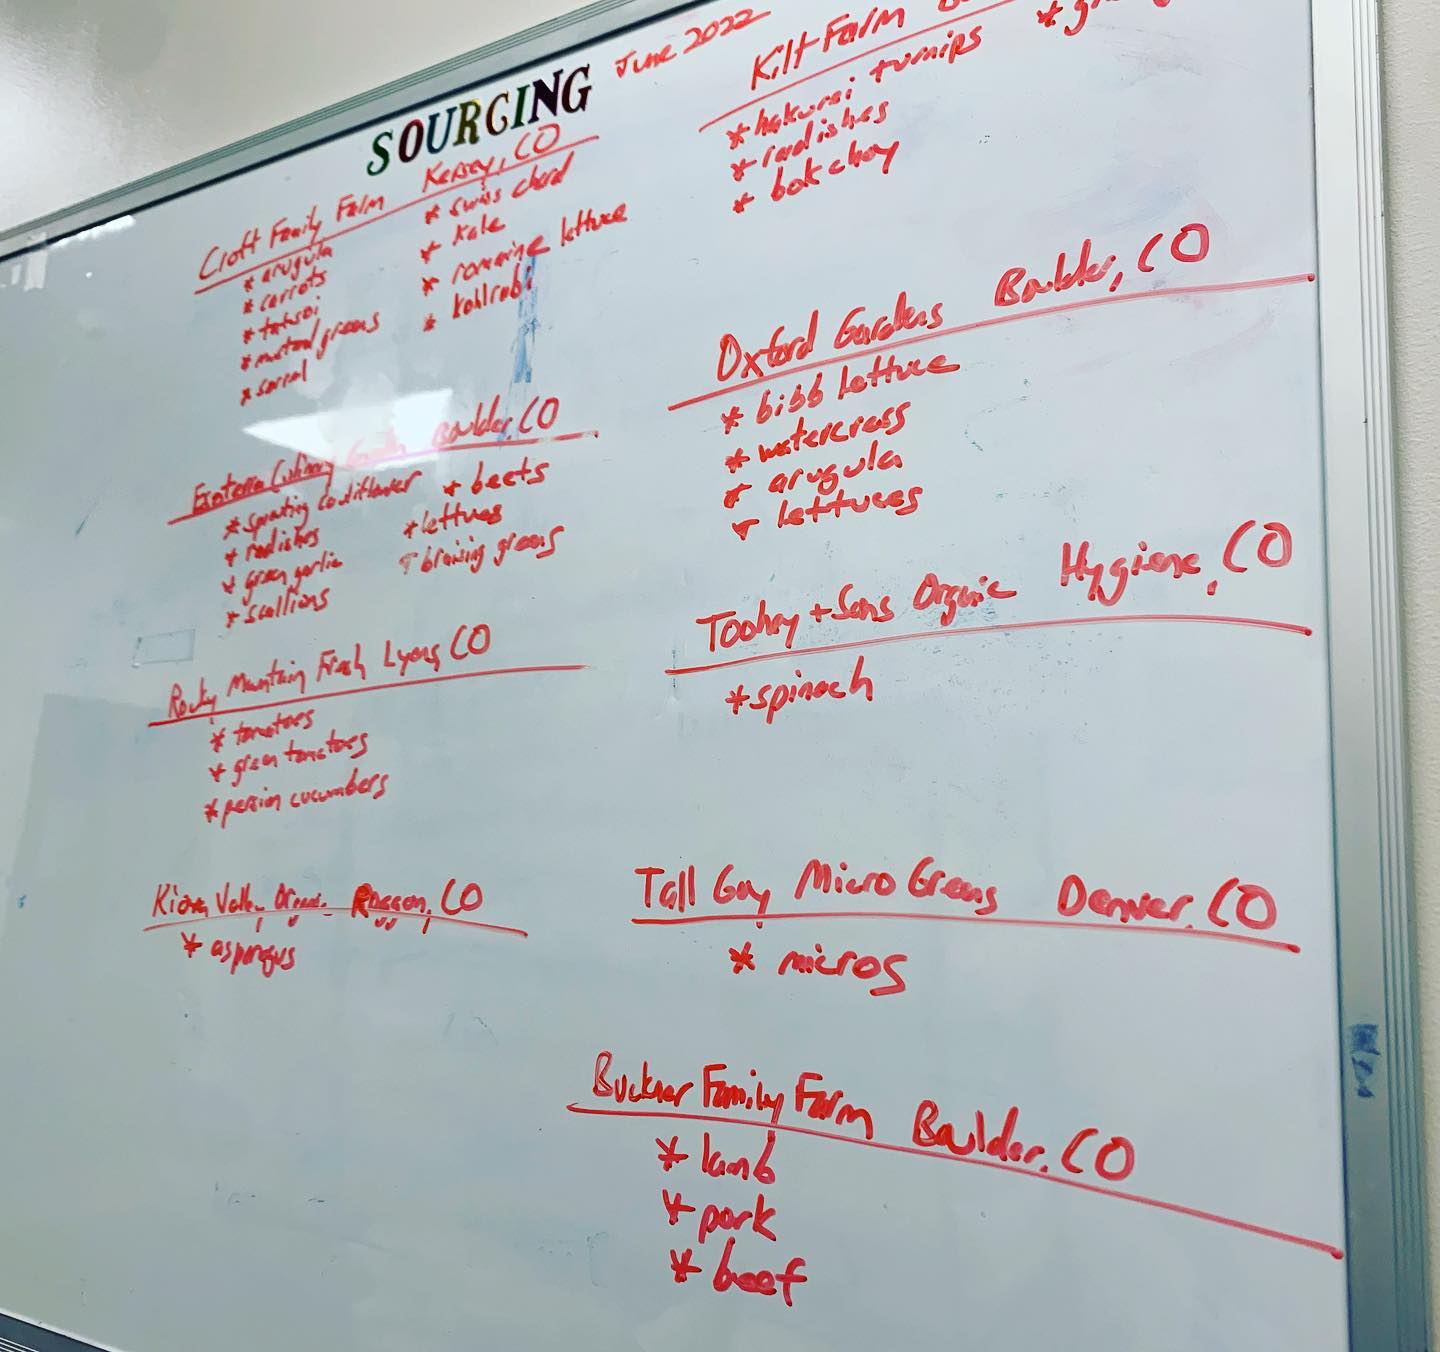 SOURCING June 2022
Croft Family Farm Kersey, CO
* arugula
* carrots
* tatsoi
* mustard greens
* sorrel
* swiss chard
* kale
* romaine lettuce
* kohlrabi
Esoterra Culinary Garden Boulder, CO
* sprouting cauliflower
* radishes
* green garlic
* scallions
* beets
* lettuces
* braising greens
Rocky Mountain Fresh Lyons, CO
* tomatoes
* green tomatoes
* persian cucumbers
Kiowa Valley Roggen, CO
* asparagus
Kilt Farm
* hakurei turnips
* radishes
* bok choy
Oxford Gardens Boulder, CO
* bibb lettuce
* watercress
* arugula
* lettuces
Toohey + Sons Organic Hygiene, CO
* spinach
Tall Guy Micro Greens Denver, CO
* micros
Buckner Family Farm Boulder, CO
* lamb
* pork
* beef